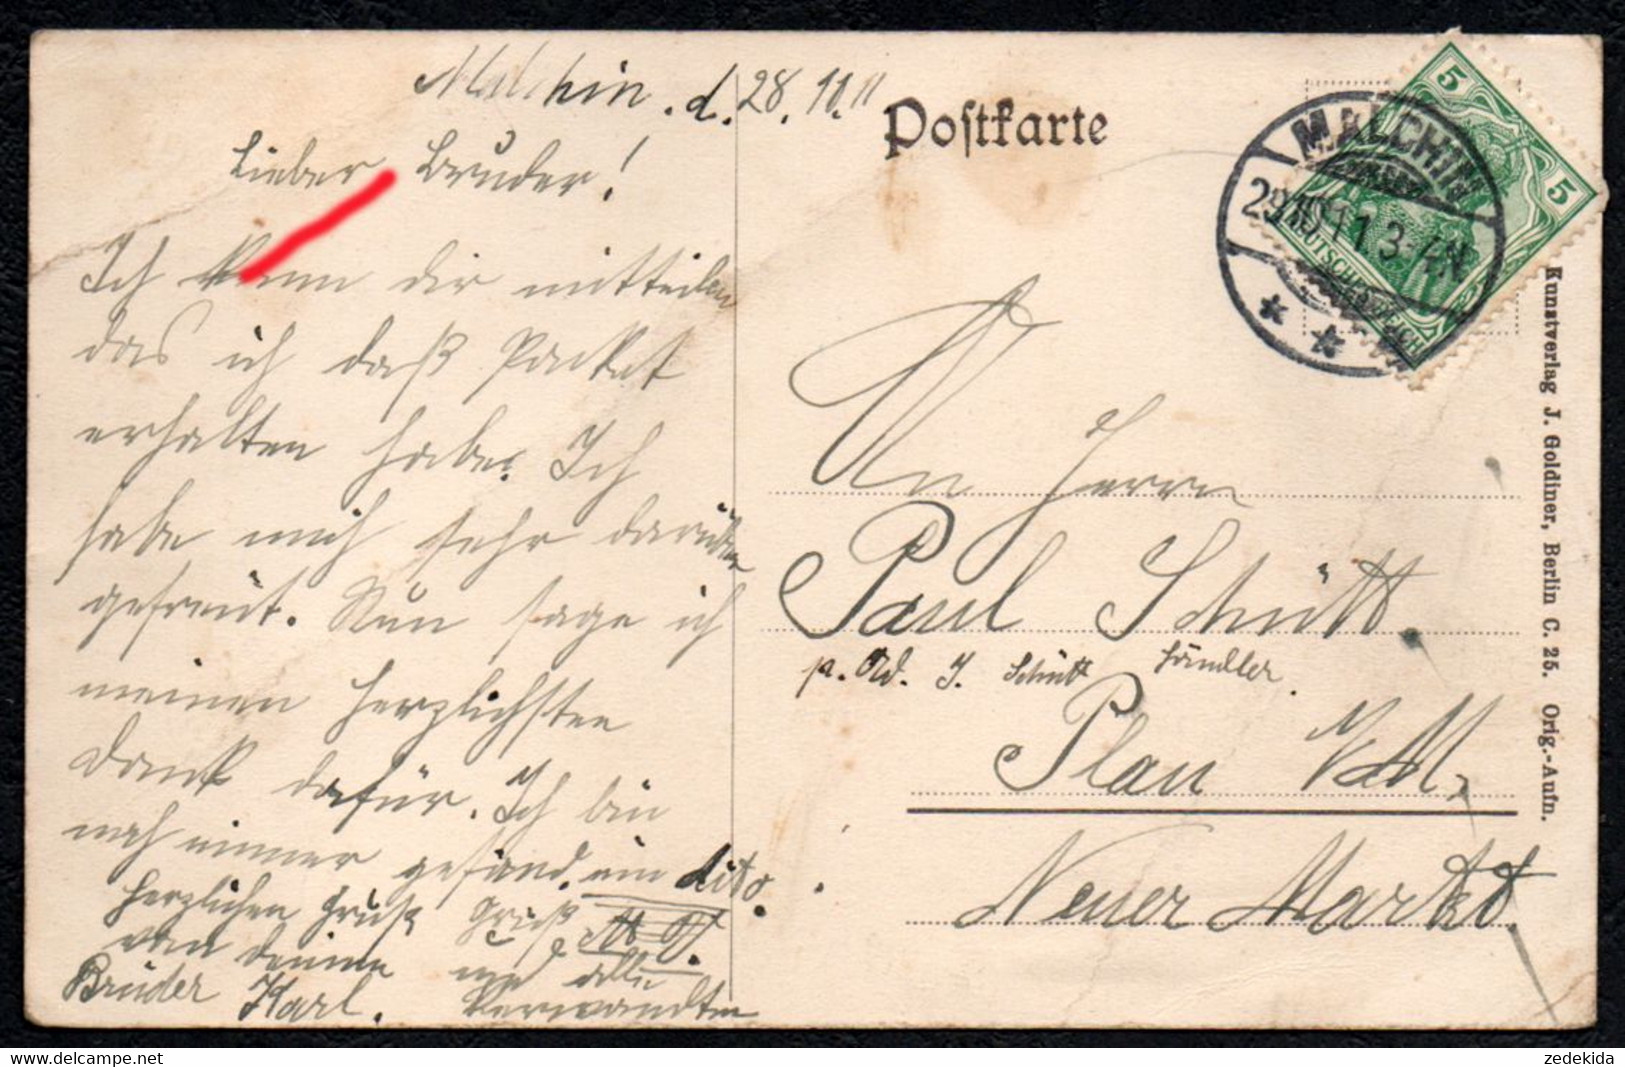 Malchin. d. 28. 10. 11
Lieber Bruder!
Ich kann dir mitteilen
das ich daß Packet
erhalten habe. Ich
habe mich sehr darüber
gefreut. Nun sage ich
meinen herzlichsten
Dank dafür. Ich bin
noch immer gesund. ein dito.
Herzlichen Gruß
von deinem
Bruder Karl.
Gruß
und alle
Verwandten
Postkarte
MALCHIN
29.10.11. 3-4N.
5
5
DEUTSCHES REICH
An Herrn
Paul Schütt.
p. Ad. J. Schütt Händler.
Plau i/M.
Neuer Markt.
Kunstverlag J. Goldiner, Berlin C. 25. Orig.-Aufn.
zedekida